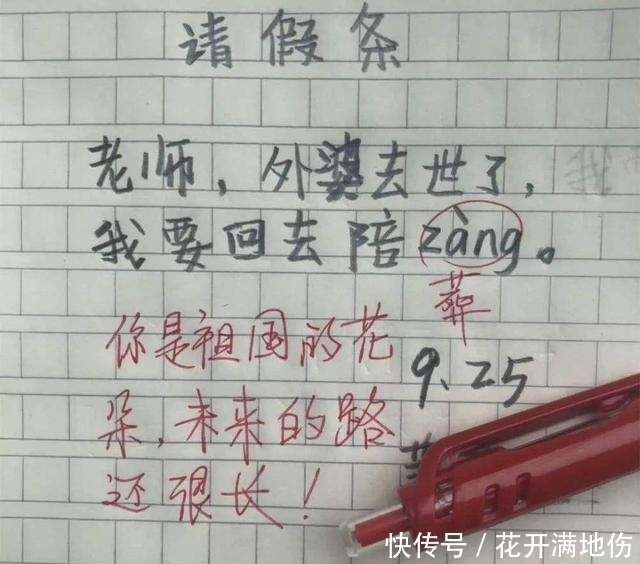 请假条
老师，外婆去世了，
我要回去陪zàng。
葬
你是祖国的花
朵，未来的路
还很长！
9.25
快传号／花开满地伤